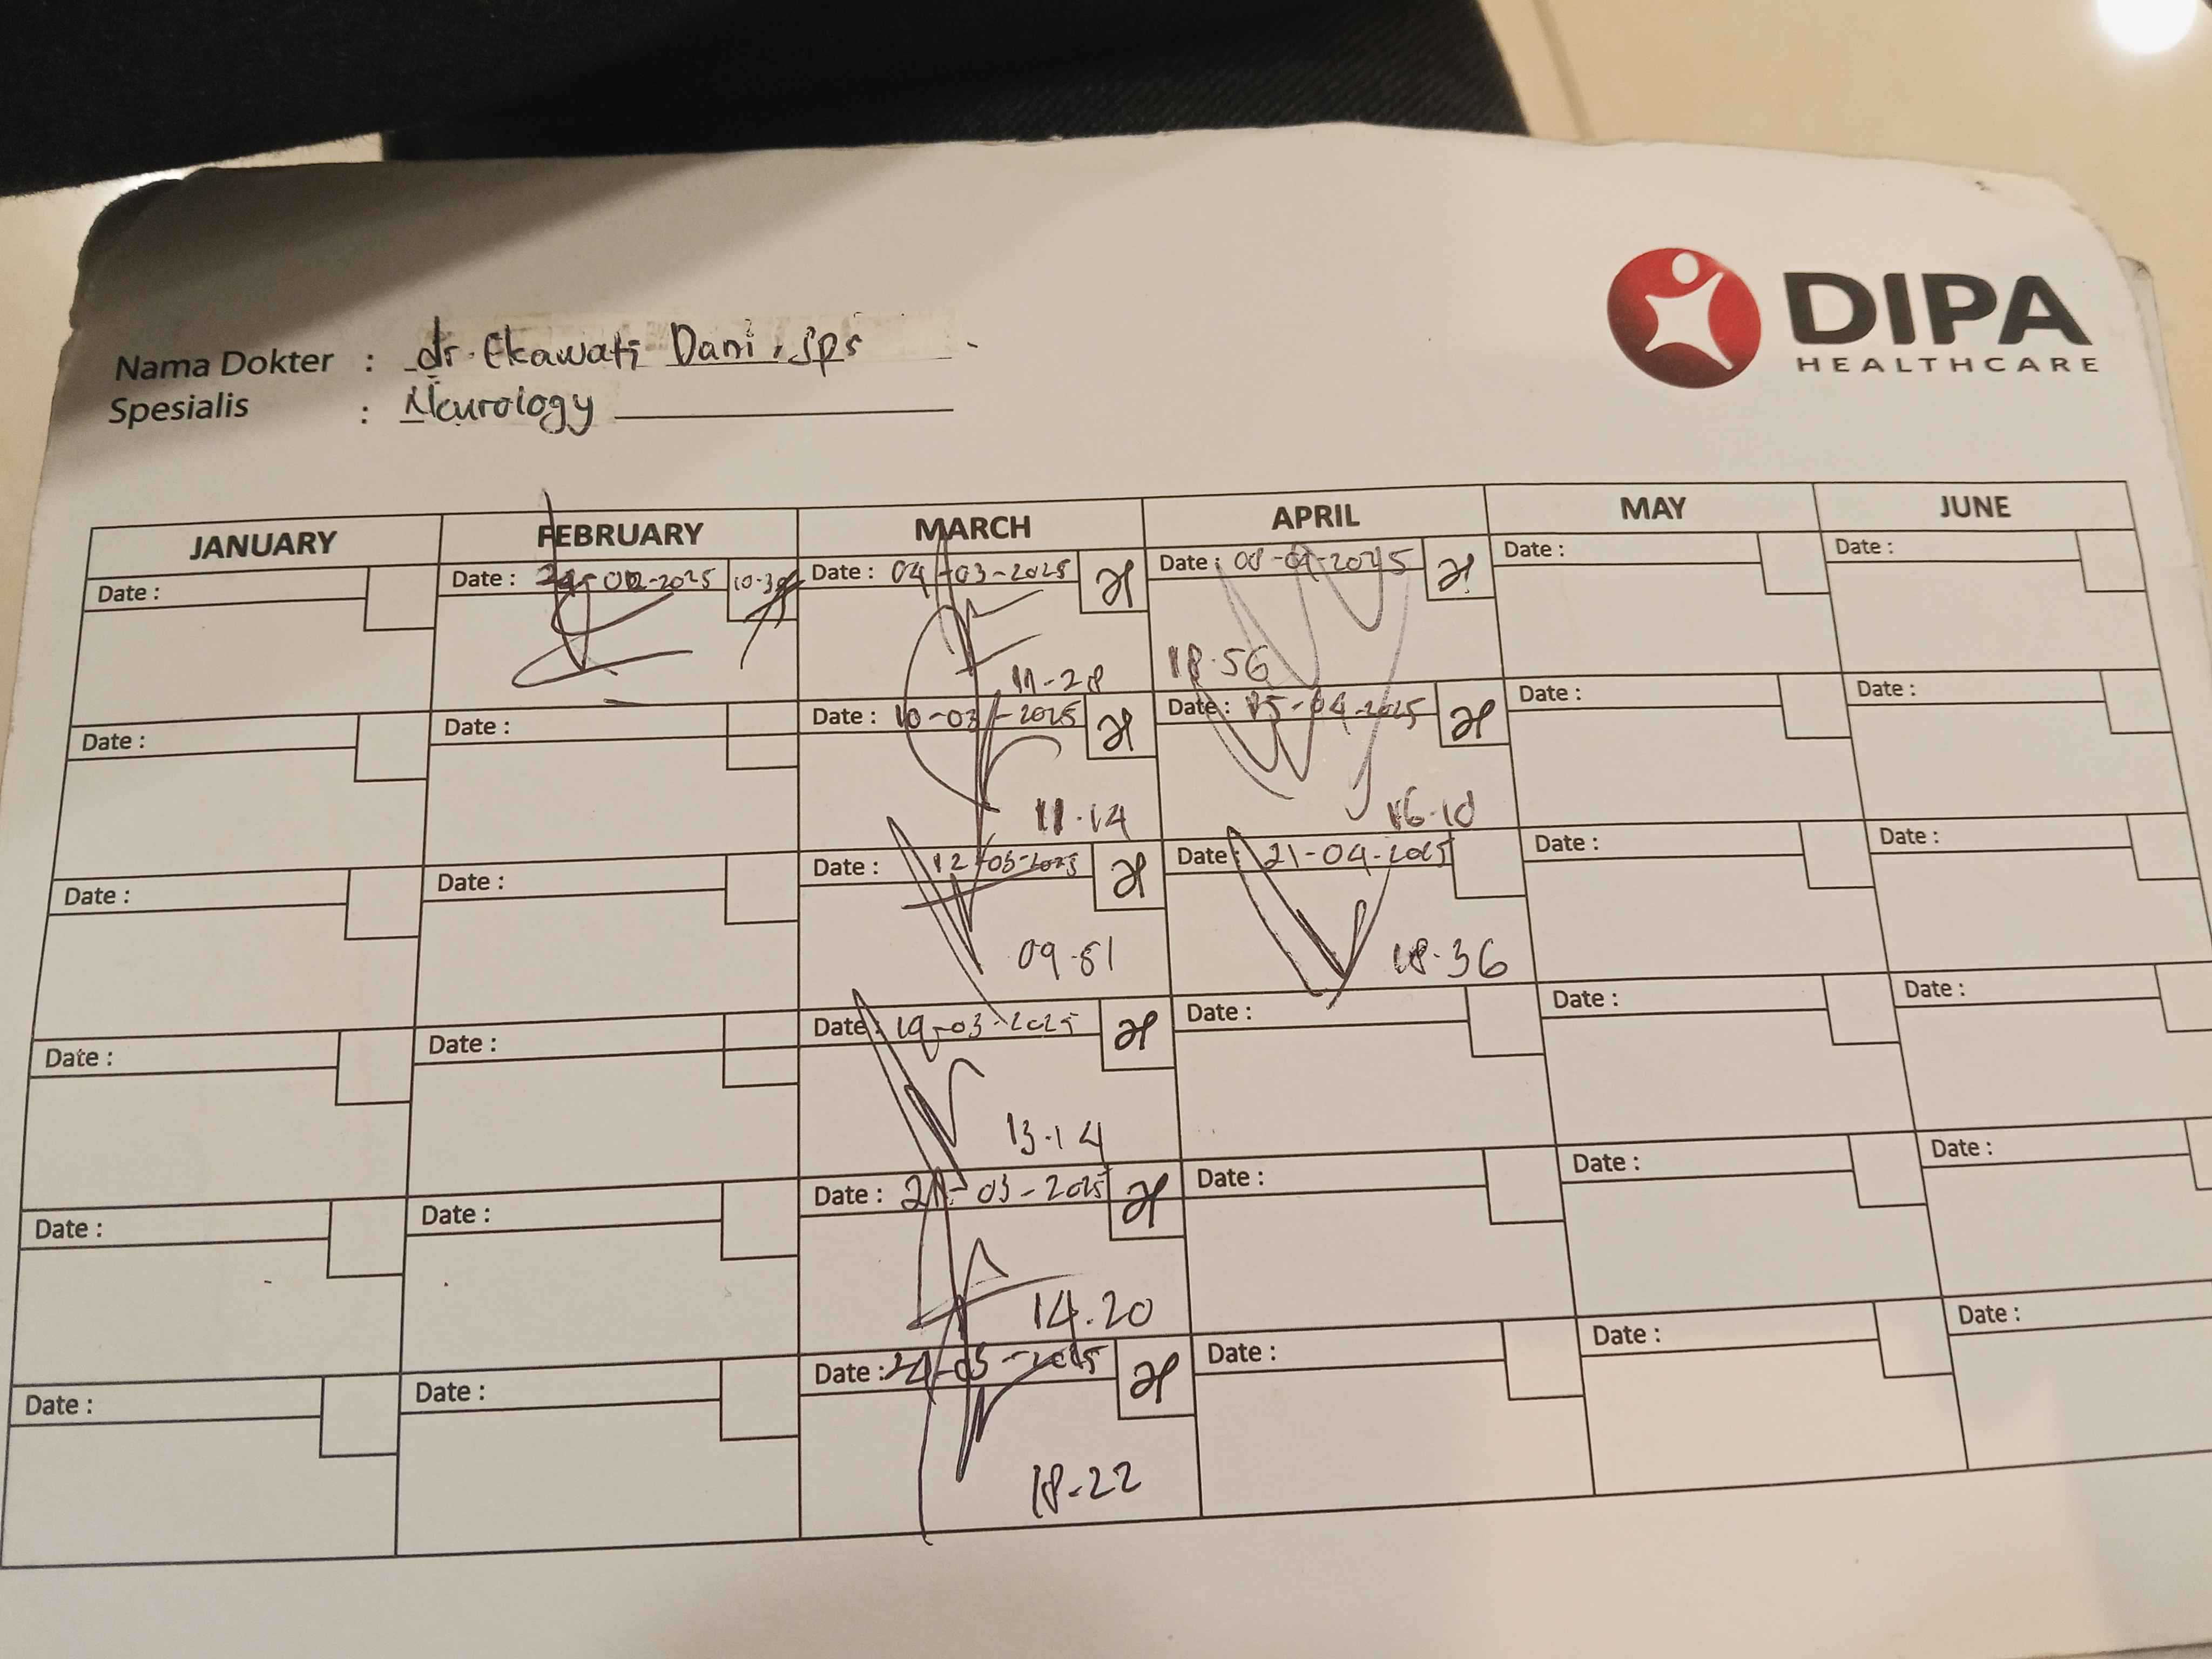 DIPA
HEALTHCARE
Nama Dokter : dr. Ekawati Dani, Sps
Spesialis : Neurology
JANUARY FEBRUARY MARCH APRIL MAY JUNE
Date : Date : -02-2025 Date : 04-03-2025 Date : 08-04-2025 Date : Date :
11-28 18.56
Date : Date : Date : 10-03-2025 Date : 15-04-2025 Date : Date :
11.14 16.10
Date : Date : Date : 12-03-2025 Date : 21-04-2025 Date : Date :
09.51 18.36
Date : Date : Date : 19-03-2025 Date : Date : Date :
13.14
Date : Date : Date : 21-03-2025 Date : Date : Date :
14.20
Date : Date : Date : -03-2025 Date : Date : Date :
18-22